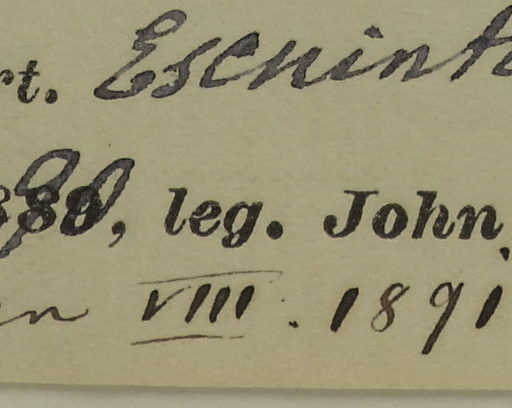 rt. Escuint
90, leg. John
n VIII. 1891